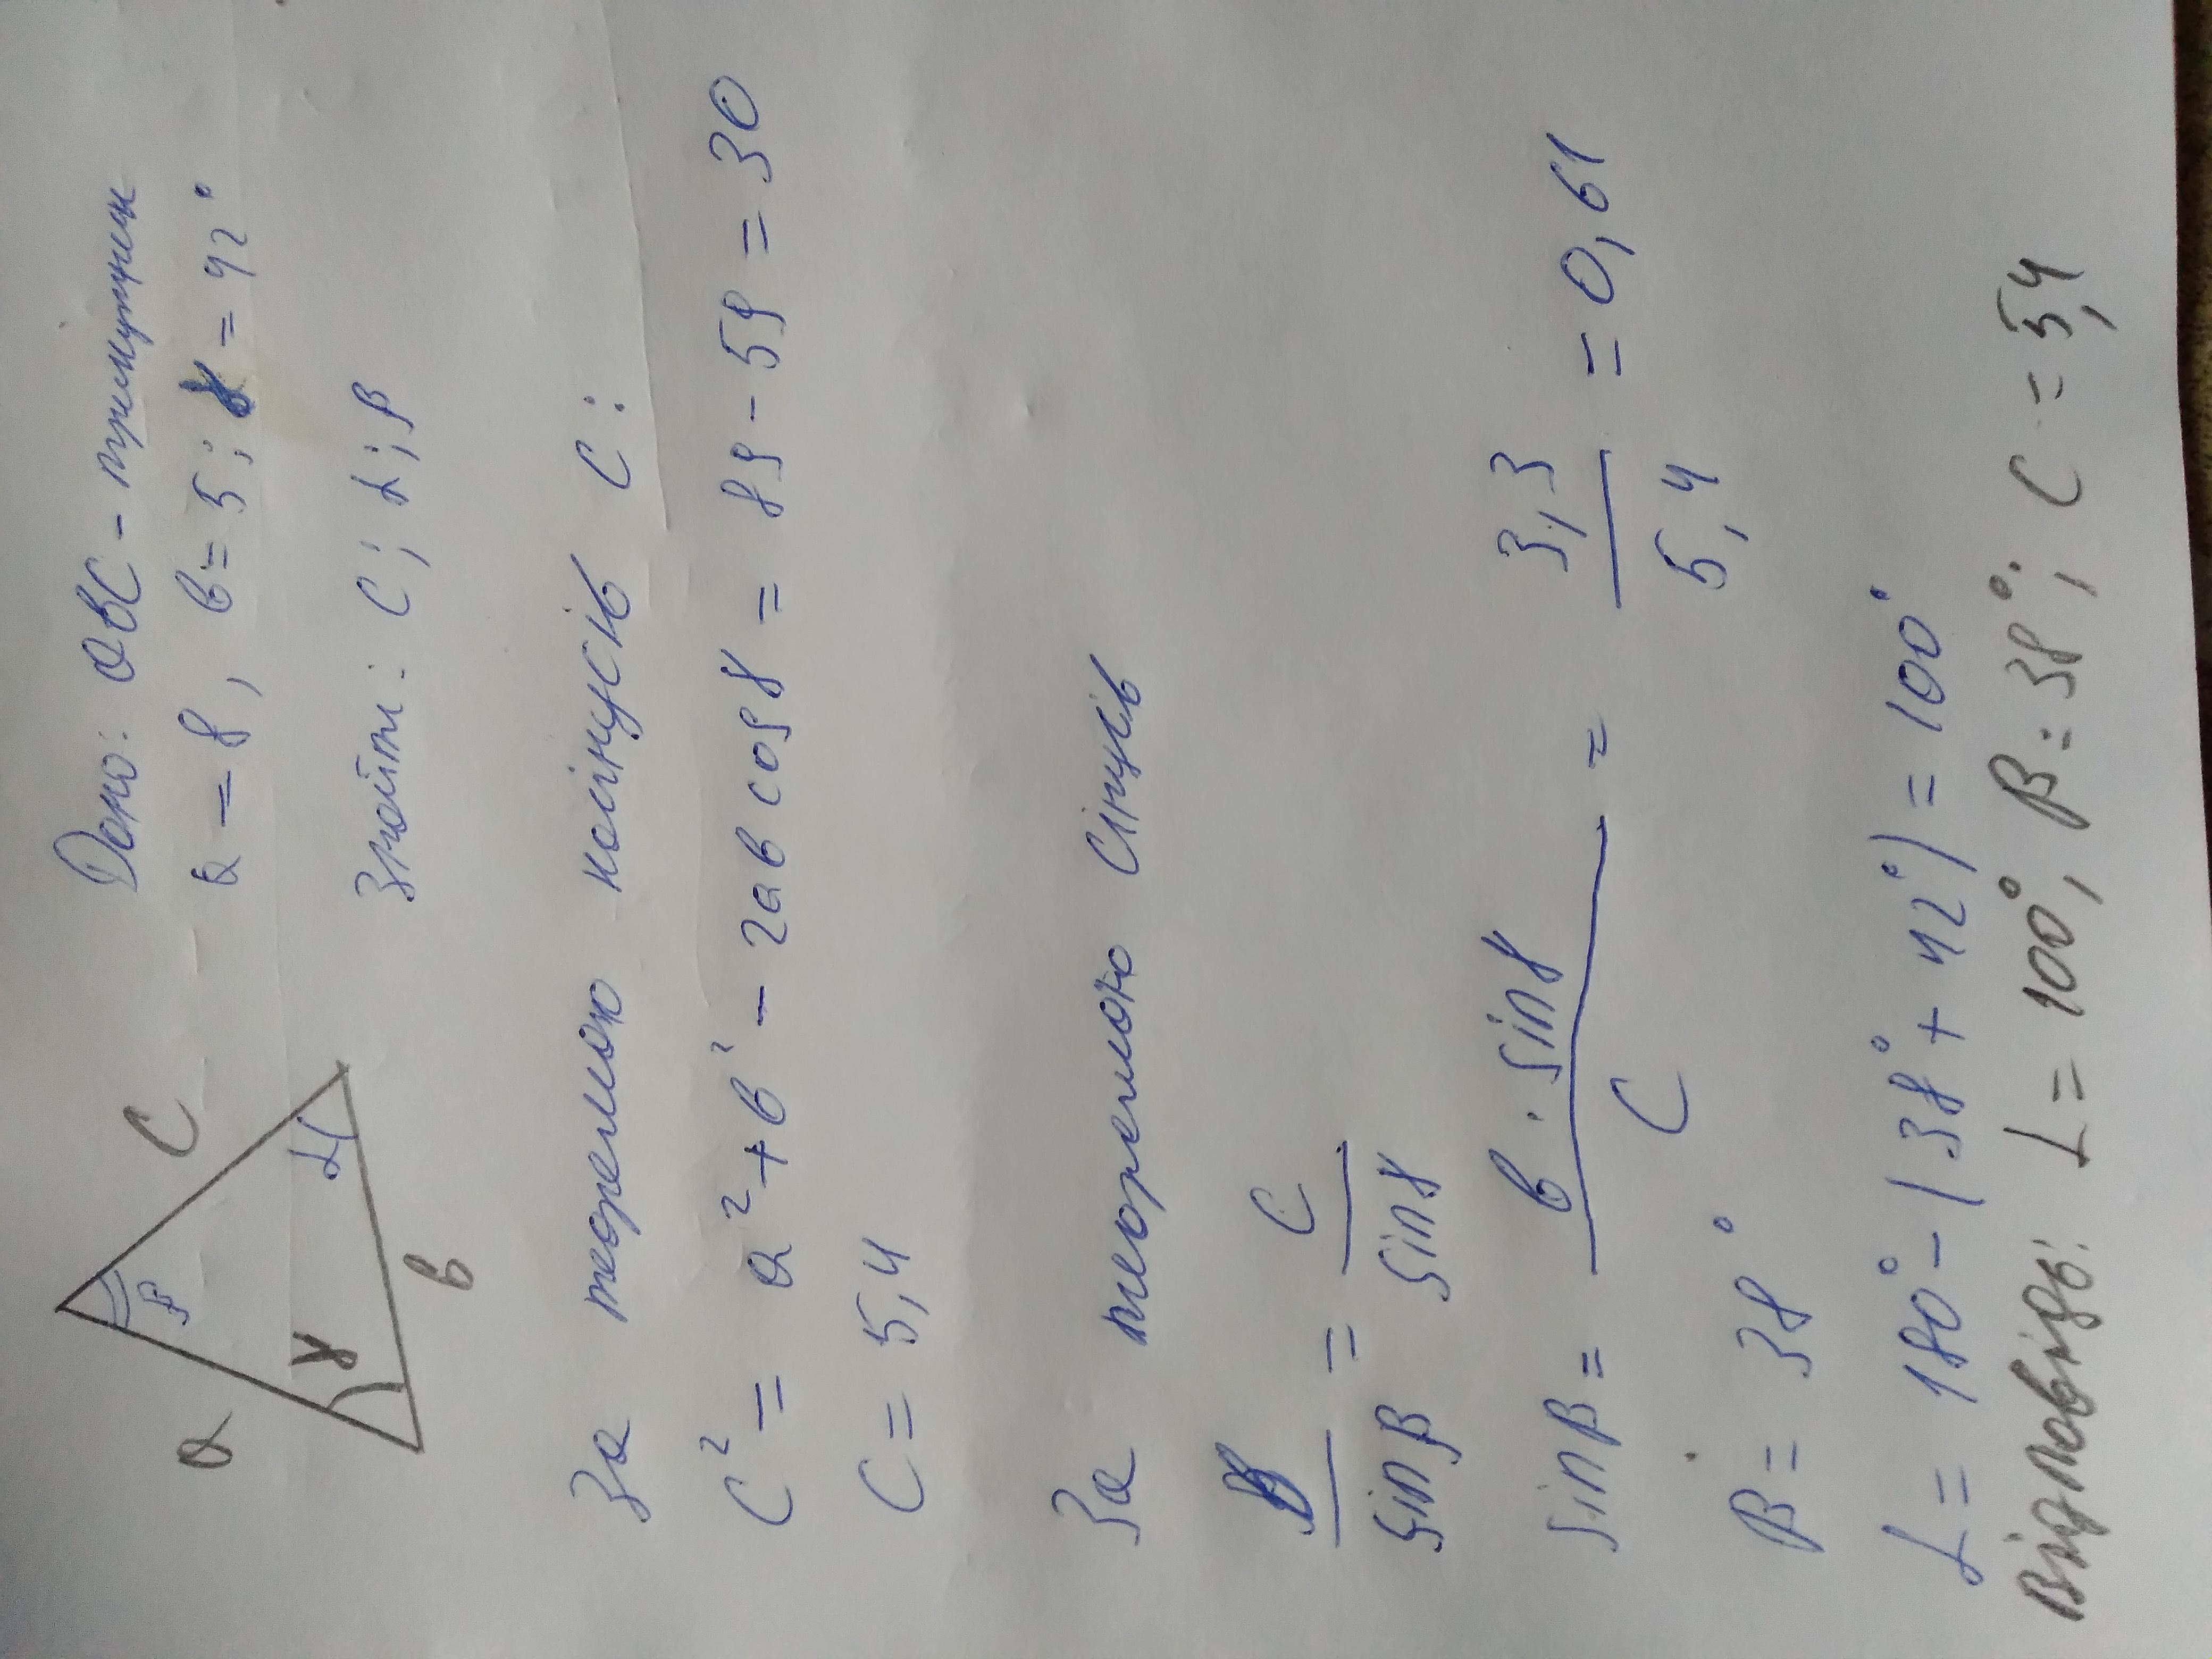 Дано: авс - трикутник
а = 8, в = 5; γ = 42°
Знайти: с; α; β
а
с
в
β
γ
α
За теоремою косінусів с:
c² = a² + в² - 2ав cos γ = 89 - 59 = 30
c = 5,4
За теоремою сінусів
в/sin β = c/sin γ
sin β = в · sin γ/c = 3,3/5,4 = 0,61
β = 38°
α = 180° - (38° + 42°) = 100°
Відповідь: α = 100°, β = 38°; c = 5,4